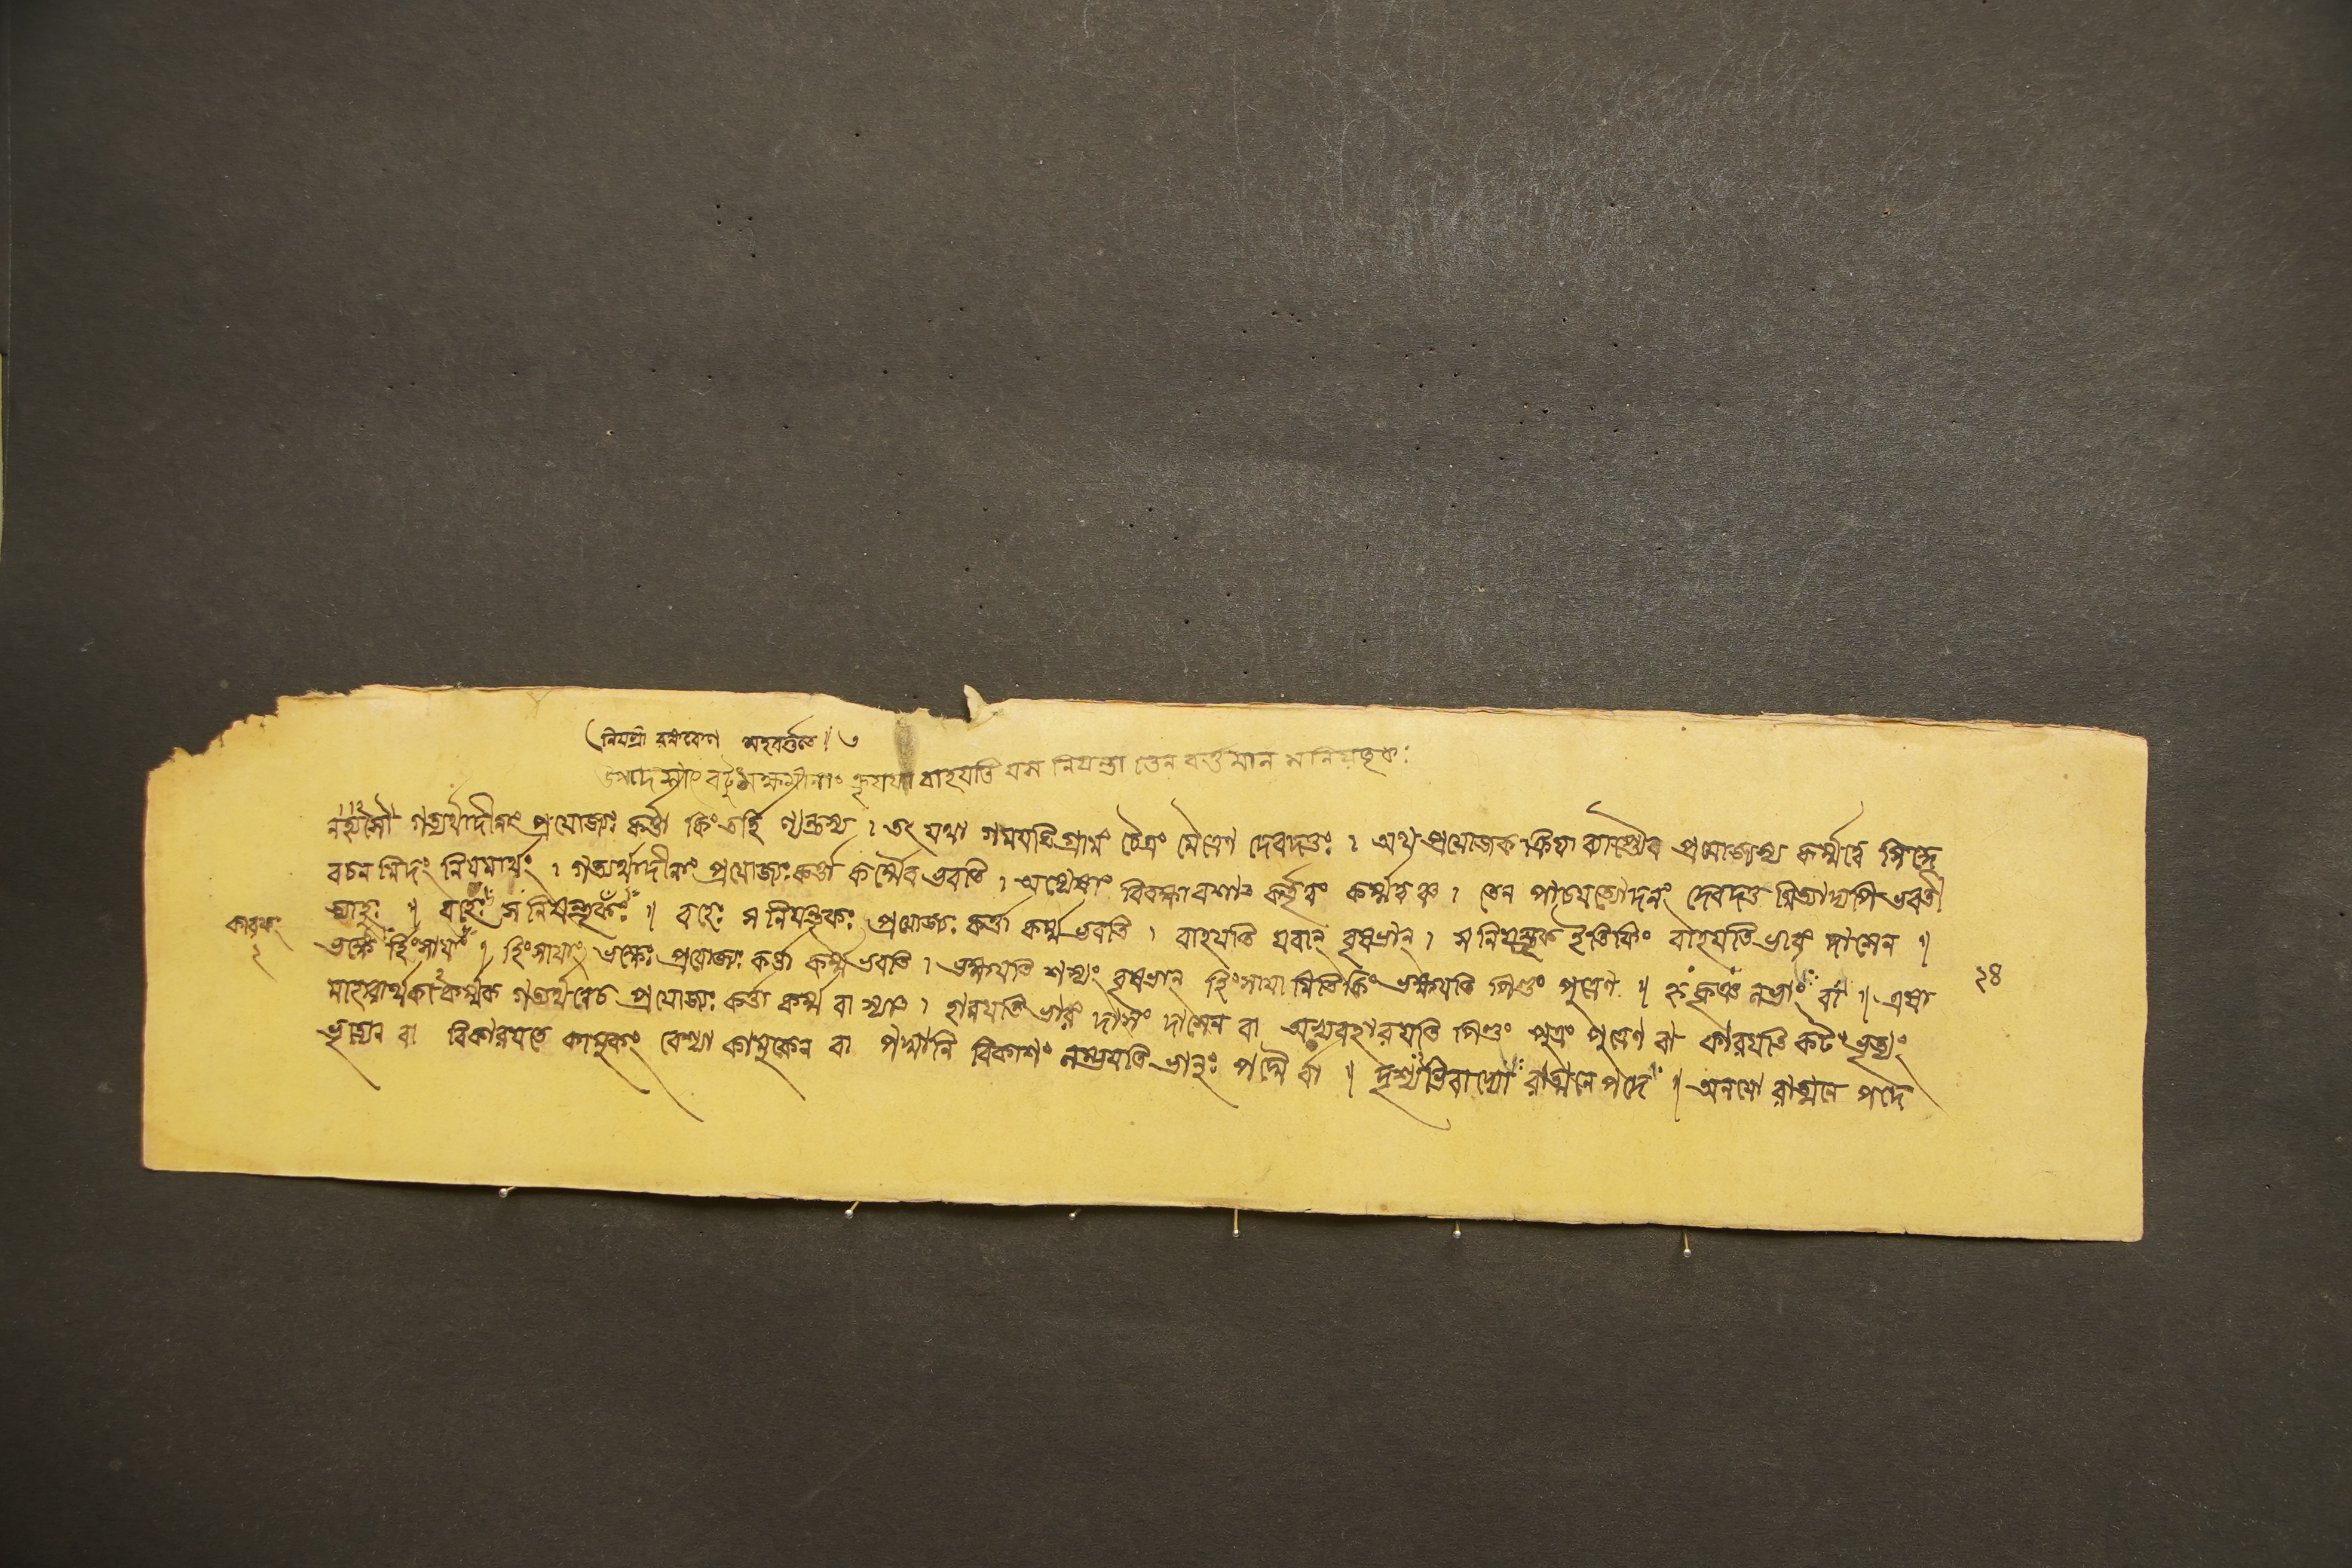 নিযন্ত্রা সহবর্ত্ততে ॥ ৩
বাহযতি যস্য নিযন্ত্রা তেন বর্ত্তমান সনিযন্তৃকঃ
নহ্যসৌ গত্যর্থাদীনাং প্রযোজ্যঃ কর্ত্তা কিংতর্হি ণ্যন্তস্য । তৎ যথা গমযতি গ্রামং চৈত্রং মৈত্রেণ দেবদত্তঃ । অথ প্রযোজক ক্রিযা ব্যাপ্ত্যৈব প্রযোজ্যস্য কর্ম্মত্বে সিদ্ধে
বচন মিদং নিযমার্থং । গত্যর্থাদীনাং প্রযোজ্যঃ কর্ত্তা কর্ম্মৈব ভবতি । অন্যেষাং বিবক্ষা বশাৎ কর্তৃত্বং কর্ম্মত্ব ঞ্চ । তেন পাচযত্যোদনং দেবদত্ত মিত্যাদ্যপি ভবতী
ত্যাহুঃ ॥ বহেঃ স নিযন্তৃকঃ ॥ বহেঃ স নিযন্তৃকঃ প্রযোজ্যঃ কর্ত্তা কর্ম্ম ভবতি । বাহযতি যবান্ বৃষভান্ । স নিযন্তৃক ইতিকিং বাহযতি ভারং দাসেন ॥
কারকং
২
ভক্ষে র্হিংসাযাং ॥ হিংসাযাং ভক্ষেঃ প্রযোজ্যঃ কর্ত্তা কর্ম্ম ভবতি । ভক্ষযতি শস্যং বৃষভান্ হিংসাযা মিতিকিং ভক্ষযতি পিণ্ডং পুত্রেণ ॥ হৃ ক্রঞ নভ্যাং বা ॥ এষা
২৪
মাহারার্থকা কর্ম্মক গত্যর্থত্বেচ প্রযোজ্যঃ কর্ত্তা কর্ম্ম বা স্যাৎ । হারযতি ভারং দাসং দাসেন বা অভ্যবহারযতি পিণ্ডং পুত্রং পুত্রেণ বা কারযতি কটং ভৃত্যং
ভৃত্যেন বা বিকারযতে কামুকং বেশ্যা কামুকেন বা পদ্মানি বিকাশং লম্ভযতি ভানুঃ পদ্মৈ র্বা ॥ দৃশ্যভিবাদ্যো রাত্মনে পদে ॥ অনযো রাত্মনে পদে